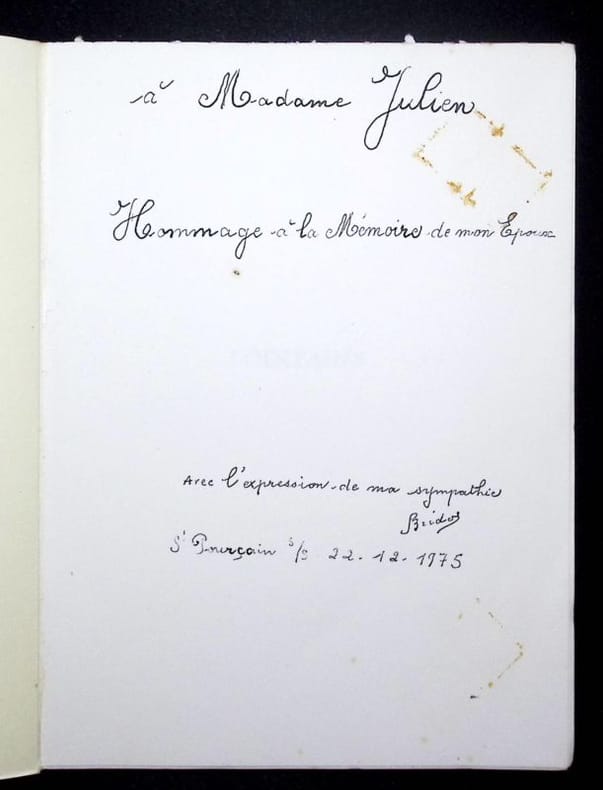 à Madame Julien
Hommage à la Mémoire de mon Epoux
Avec l'expression de ma sympathie
St Pourçain s/s 22-12-1975